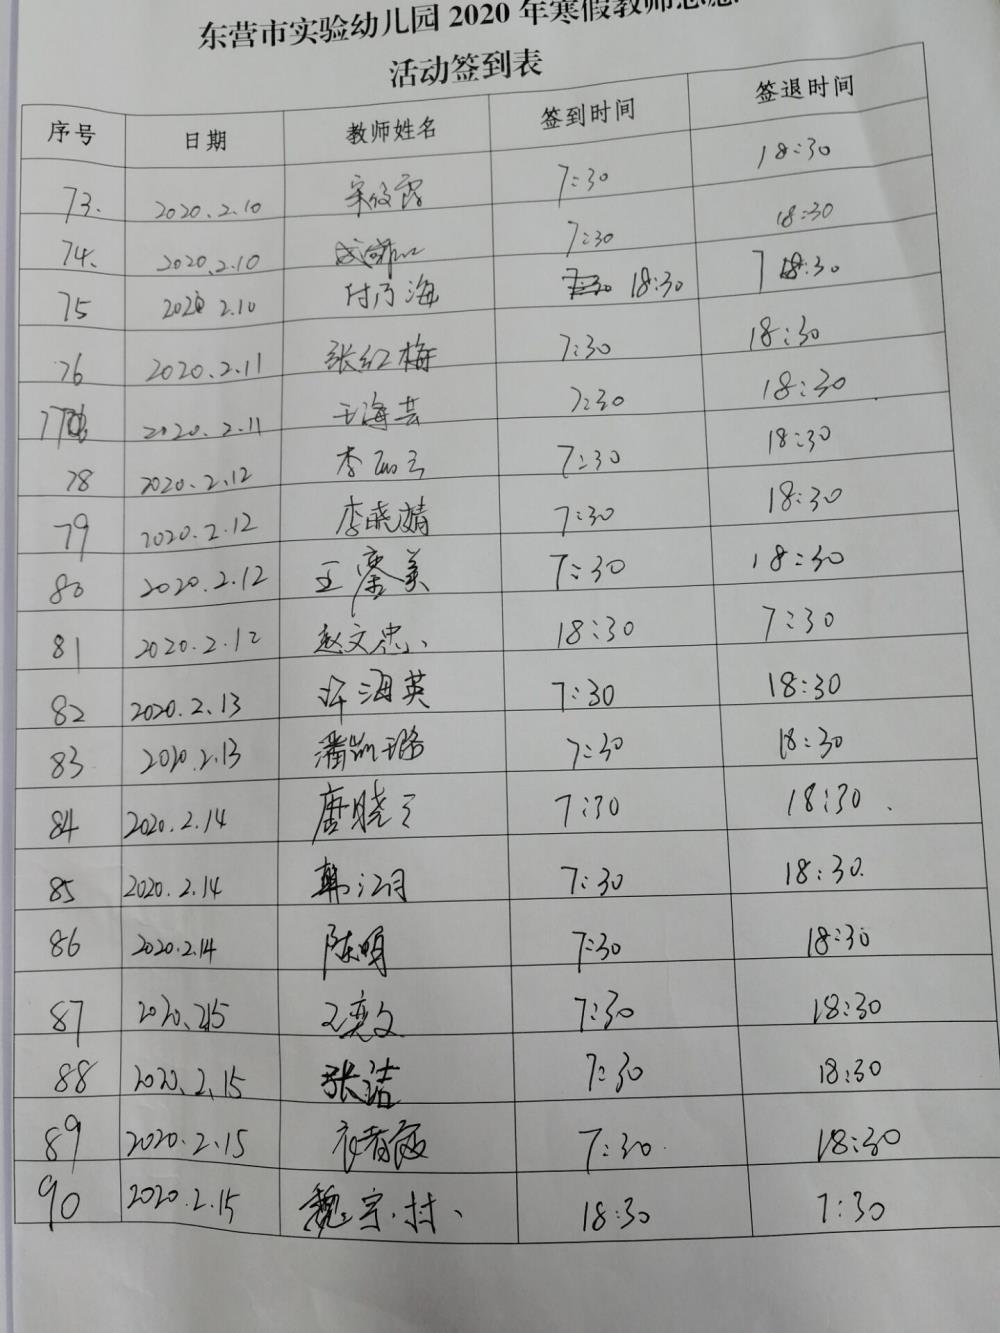 东营市实验幼儿园 2020 年寒假教师志愿
活动签到表
序号 日期 教师姓名 签到时间 签退时间
73. 2020.2.10 7:30 18:30
74. 2020.2.10 7:30 18:30
75 2020 2.10 付乃海 18:30 7:30
76 2020.2.11 张红梅 7:30 18:30
77 2020.2.11 王海芸 7:30 18:30
78 2020.2.12 7:30 18:30
79 2020.2.12 李晓婧 7:30 18:30
80 2020.2.12 7:30 18:30
81 2020.2.12 赵文忠 18:30 7:30
82 2020.2.13 许海英 7:30 18:30
83 2020.2.13 潘凯璐 7:30 18:30
84 2020.2.14 7:30 18:30
85 2020.2.14 7:30 18:30.
86 2020.2.14 陈明 7:30 18:30
87 2020.2.15 王奕文 7:30 18:30
88 2020.2.15 张洁 7:30 18:30
89 2020.2.15 7:30 18:30
90 2020.2.15 魏宗村 18:30 7:30